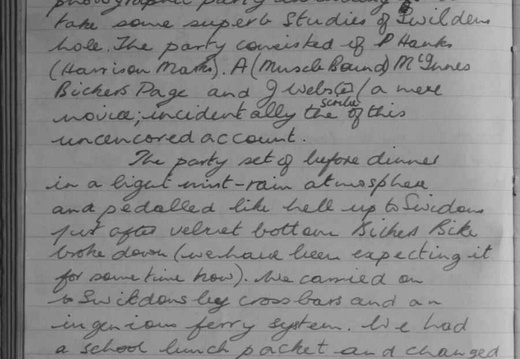 take some superb Studies of Swildens
hole. The party consisted of P Hanks
(Harrison Marks). A (Muscle Bound) McInnes
Bickers Page and J Webster (a mere
novice; incidentally the scribe of this
uncencored account.
The party set of before dinner
in a light mist-rain atmosphea
and pedalled like hell up to Swidons
just after velvet bottom Bickers Bike
broke down (we have been expecting it
for some time now). We carried on
to Swildons by crossbars and an
ingenious ferry system. We had
a school lunch packet and changed